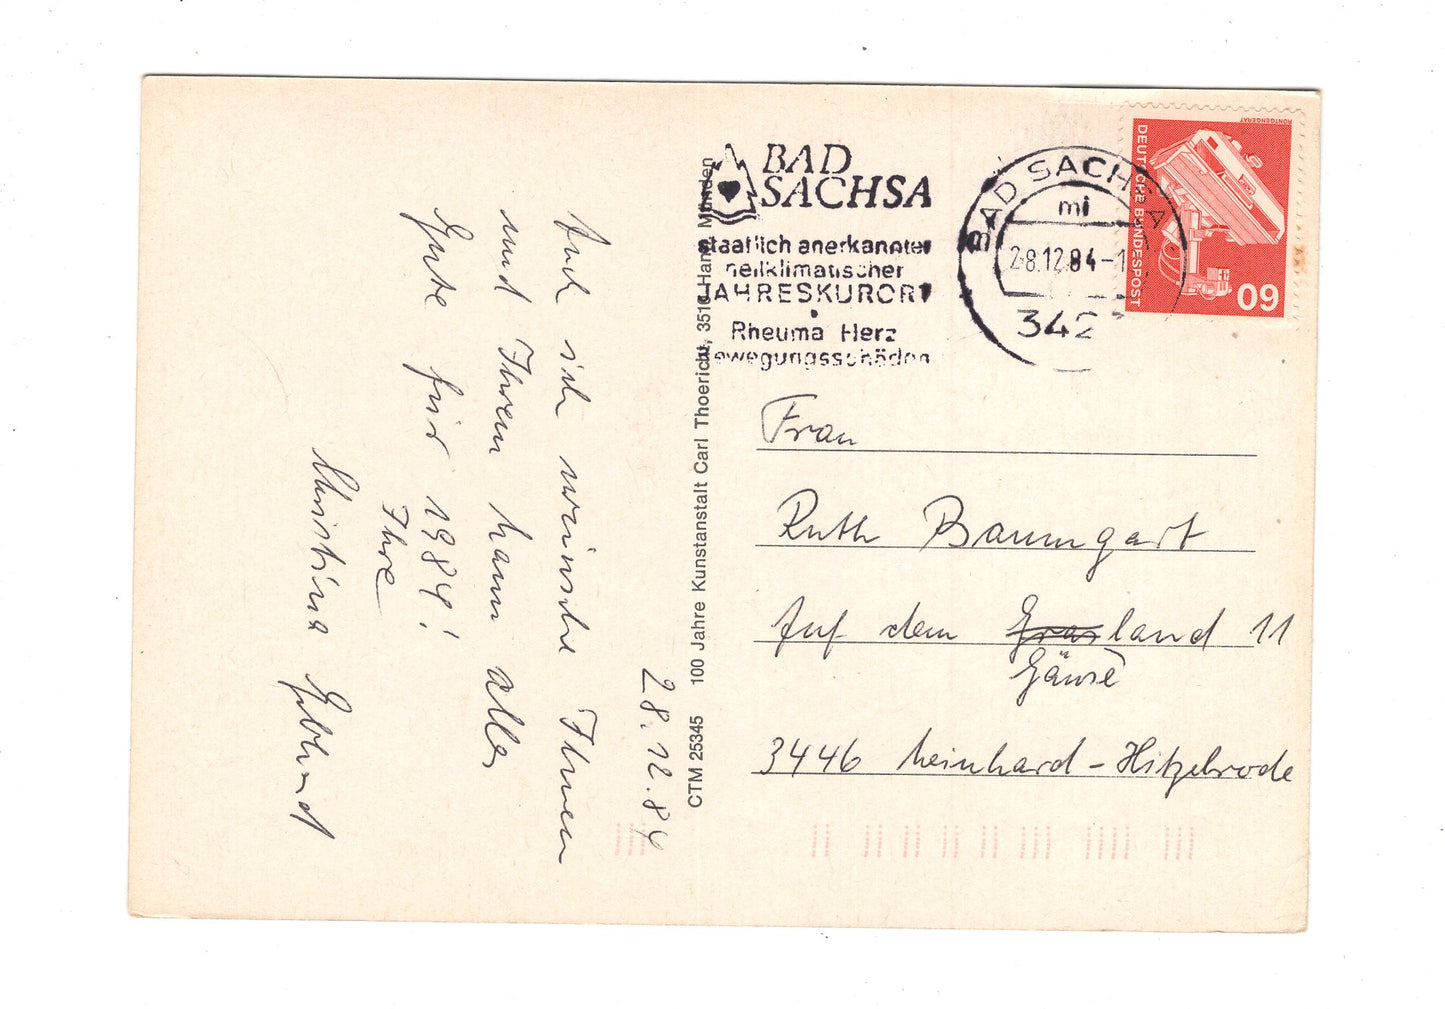 28.12.84
Auch ich wünsche Ihnen
und Ihrem Mann alles
Gute für 1984!
Ihre
Christina
CTM 25345 100 Jahre Kunstanstalt Carl Thoericht, 3510 Hann. Münden
BAD
SACHSA
staatlich anerkannter
heilklimatischer
JAHRESKURORT
Rheuma Herz
Bewegungsschäden
BAD SACHSA
mi
28.12.84-1
342
RÖNTGENGERÄT
DEUTSCHE BUNDESPOST
60
Frau
Ruth Baumgart
Auf dem Grasland 11
Gänse
3446 Meinhard-Hitzelrode